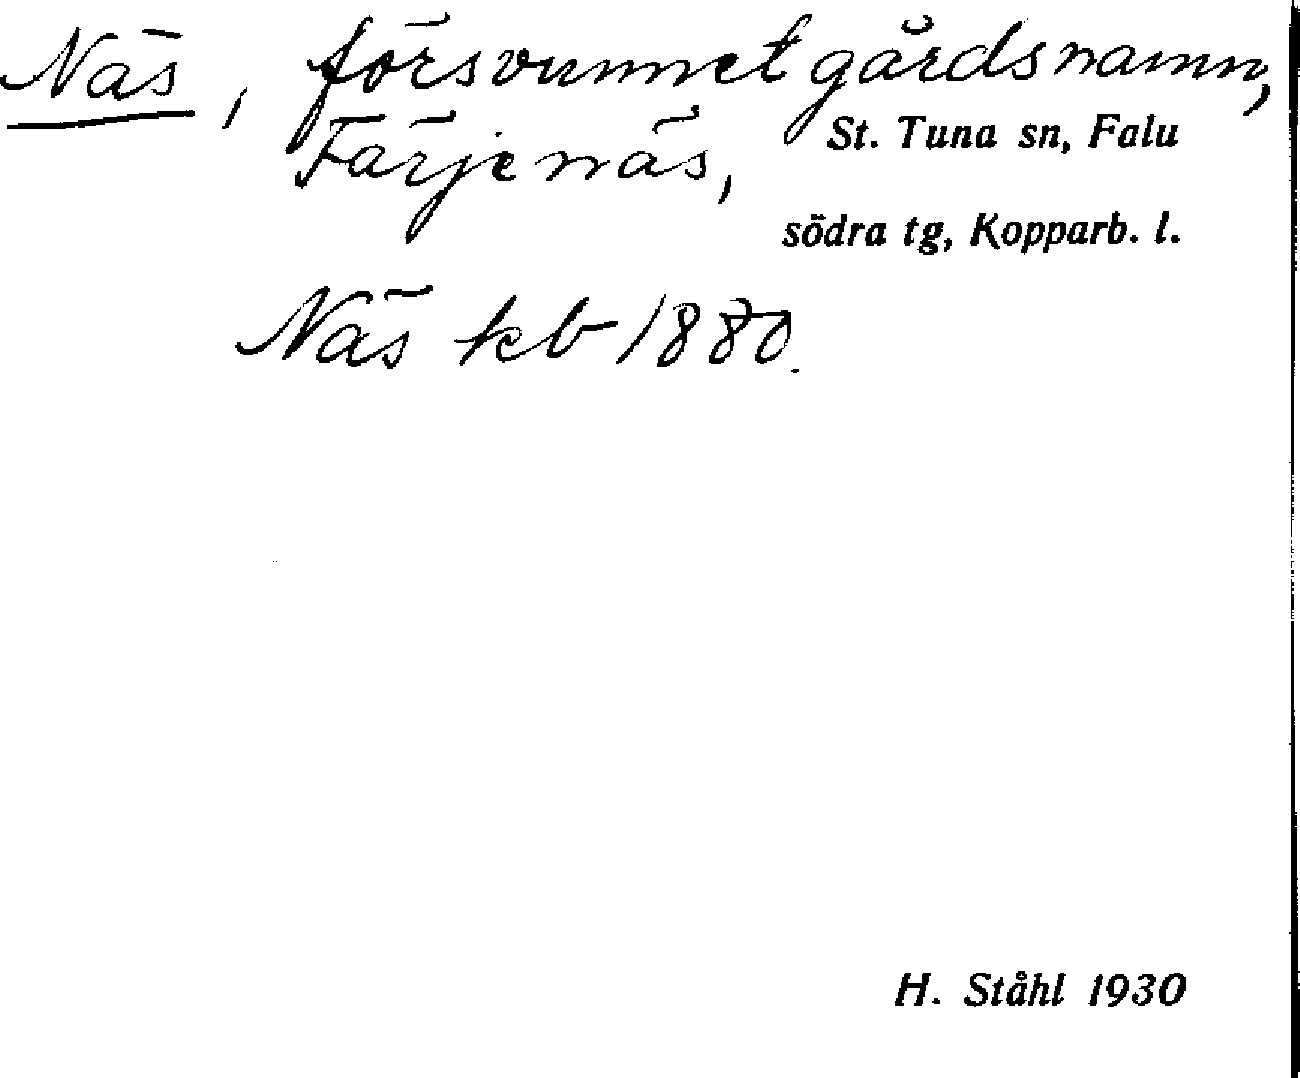 Näs, försvunnet gårdsnamn,
Färjenäs, St. Tuna sn, Falu
södra tg, Kopparb. l.
Näs kb 1880.
H. Ståhl 1930